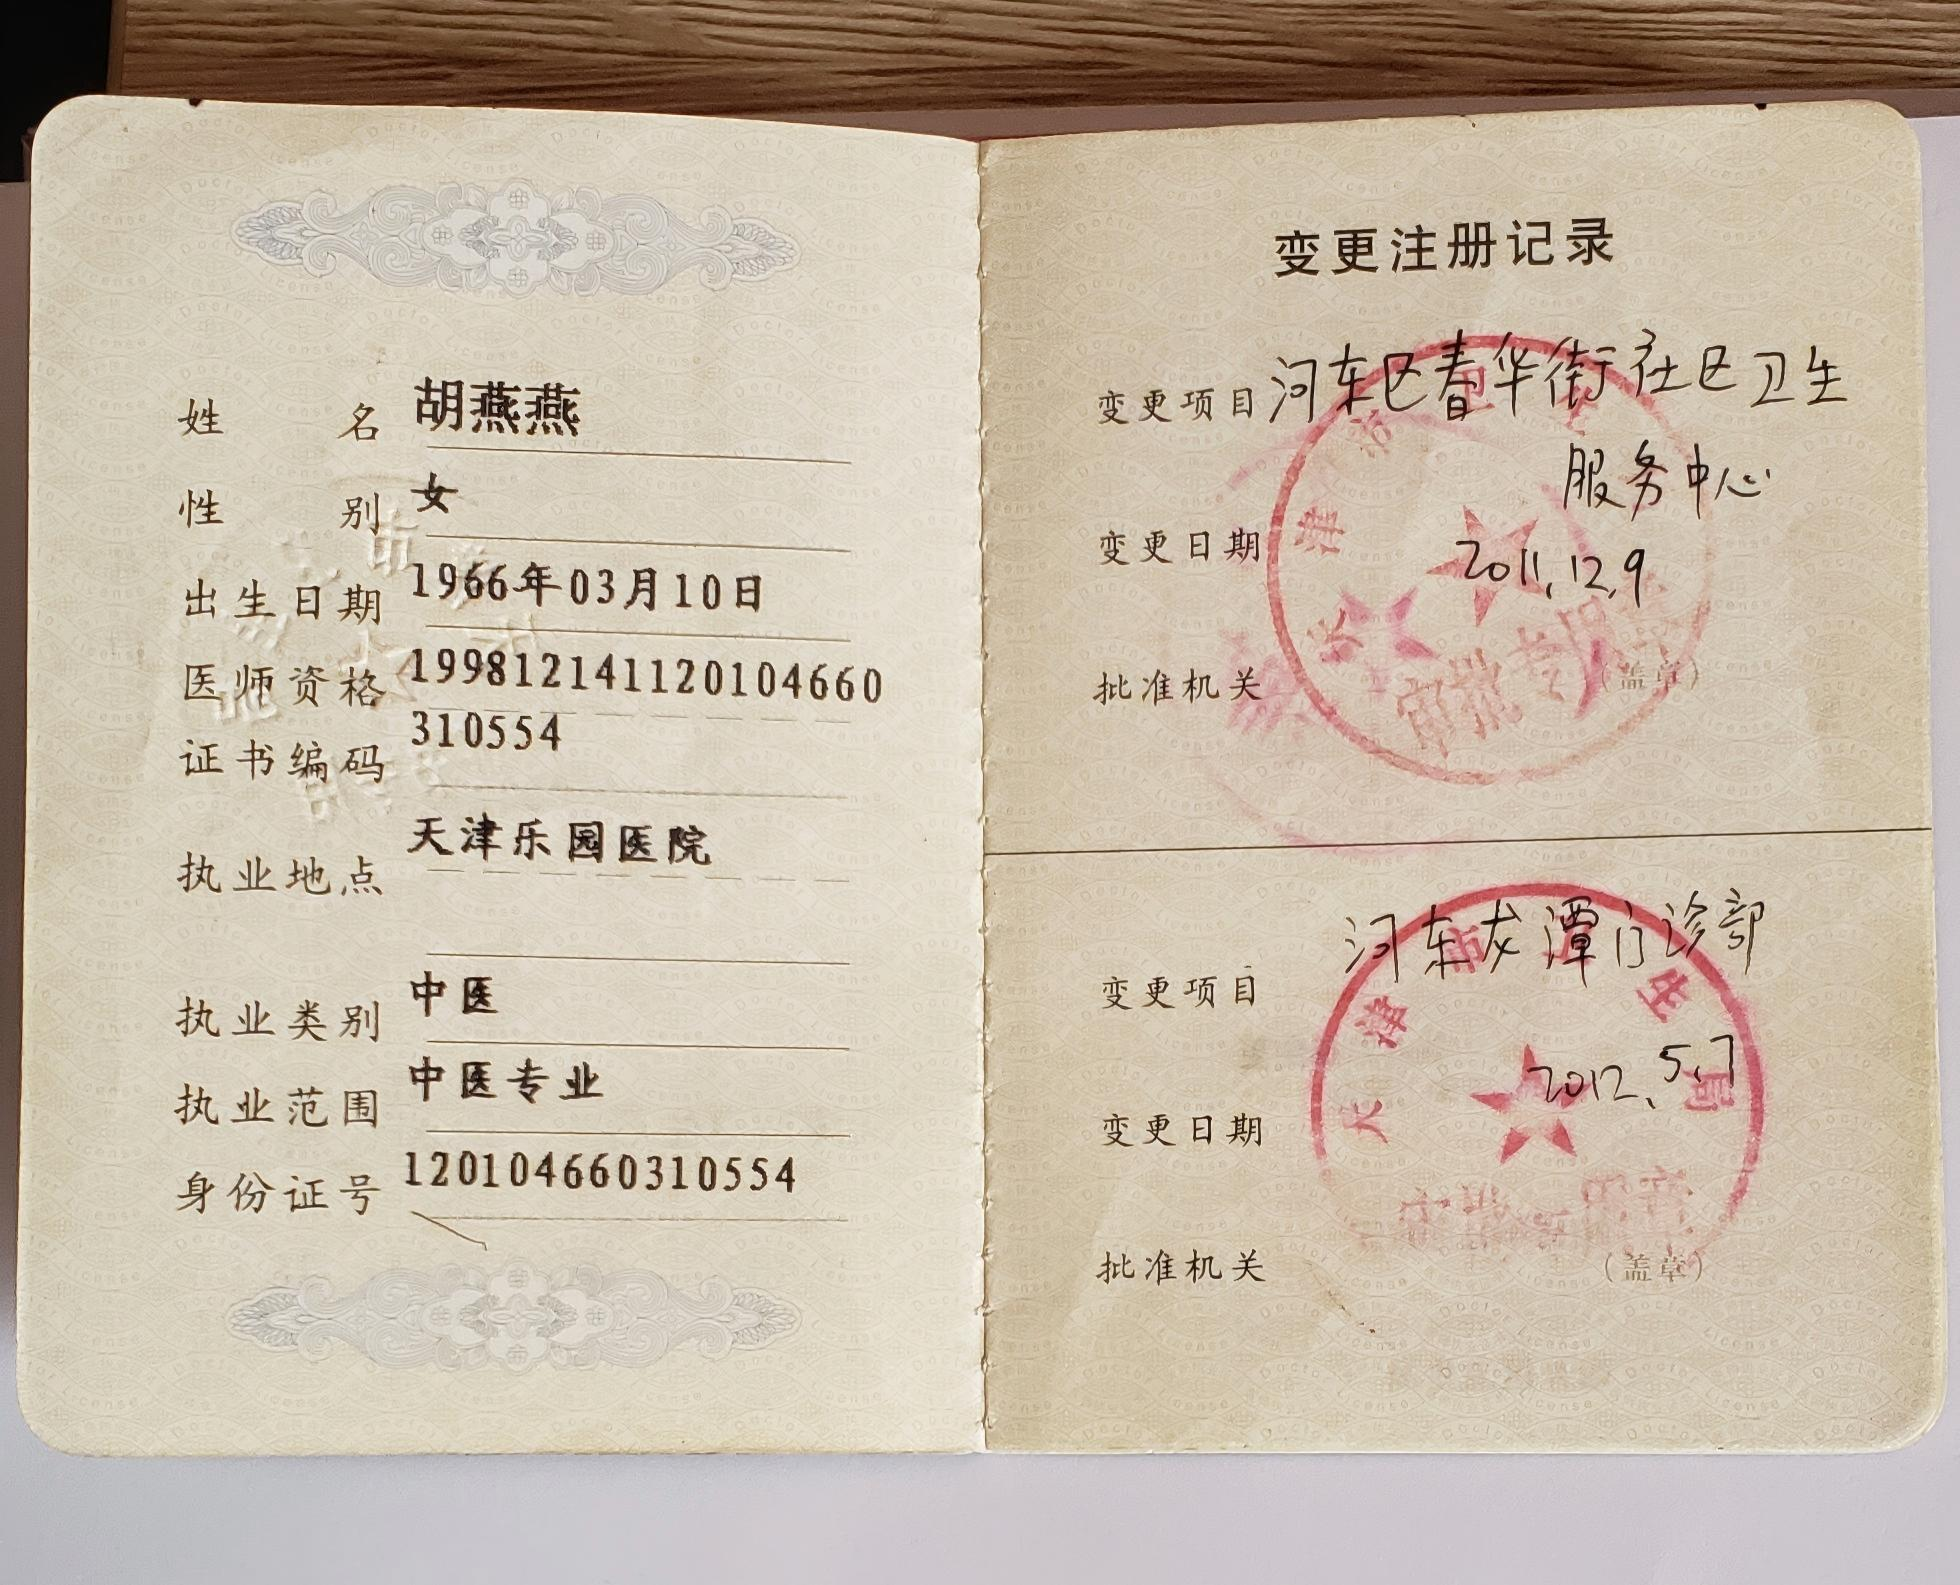 姓名 胡燕燕
性别 女
出生日期 1966年03月10日
医师资格 199812141120104660
证书编码 310554
执业地点 天津乐园医院
执业类别 中医
执业范围 中医专业
身份证号 120104660310554
变更注册记录
变更项目 河东区春华街社区卫生
服务中心
变更日期 2011.12.9
批准机关 (盖章)
变更项目 河东龙潭门诊部
变更日期 2012.5.7
批准机关 (盖章)